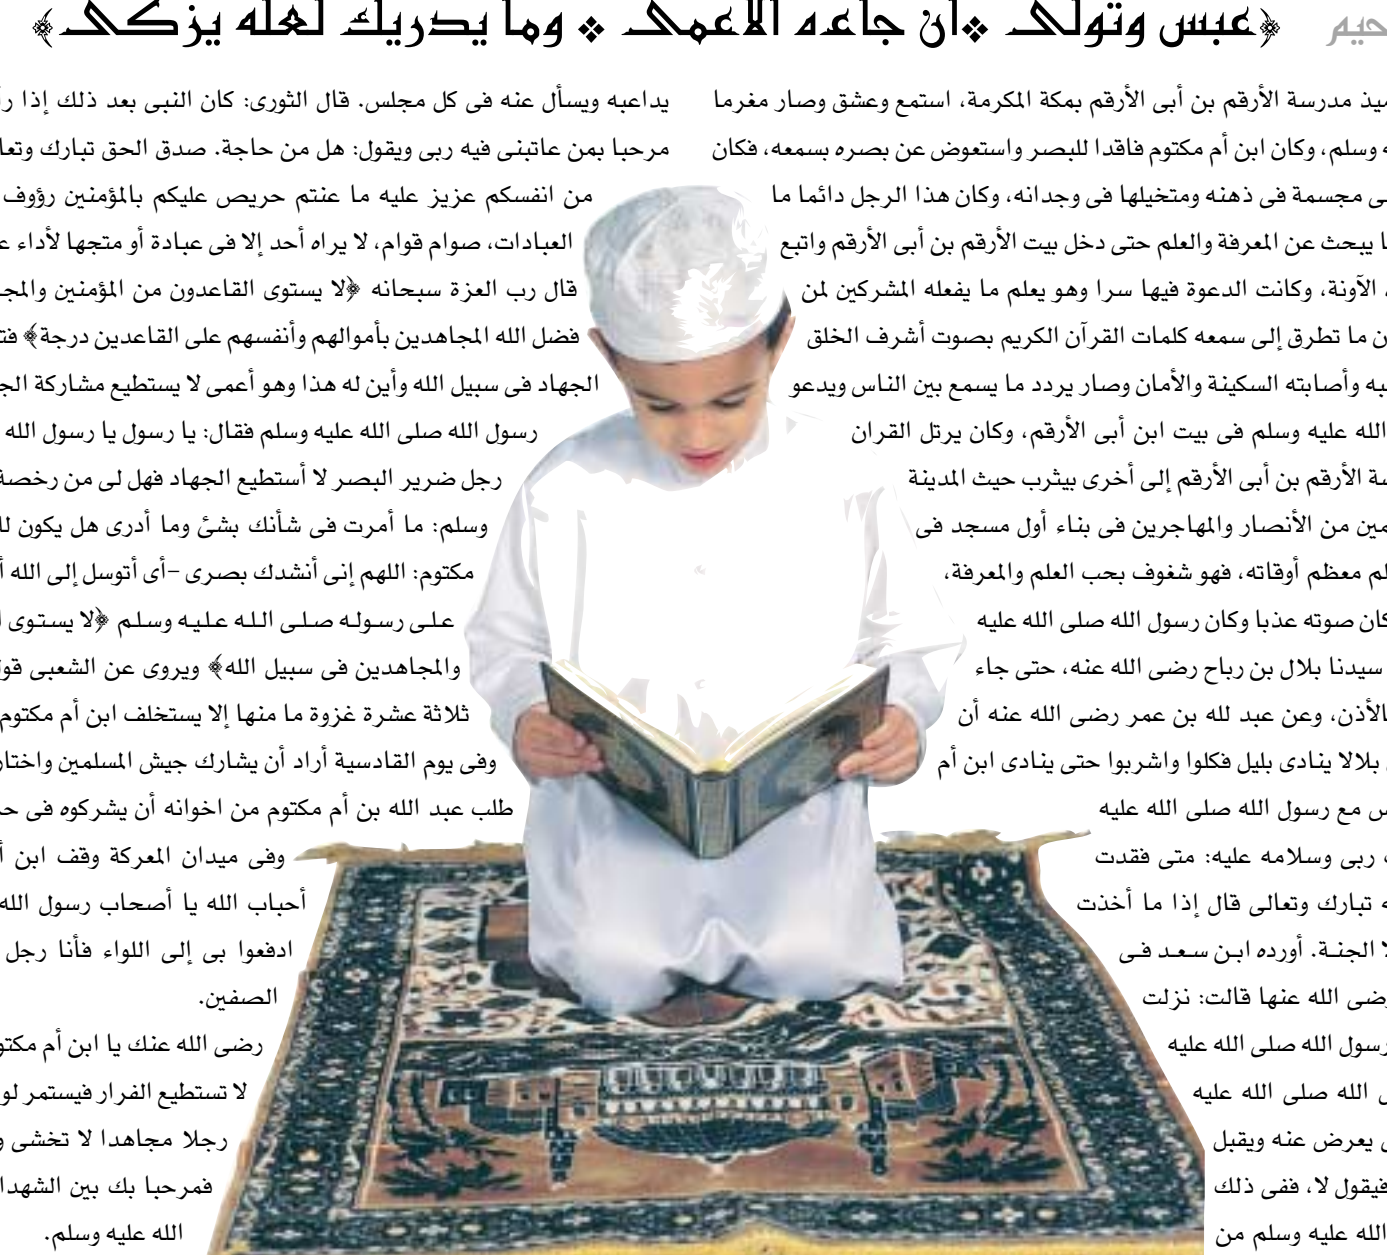 حيم ﴿عبس وتولى ❖ أن جاءه الأعمى ❖ وما يدريك لعله يزكى﴾
مدرسة الأرقم بن أبى الأرقم بمكة المكرمة، استمع وعشق وصار مغرما
وسلم، وكان ابن أم مكتوم فاقدا للبصر واستعوض عن بصره بسمعه، فكان
مجسمة فى ذهنه ومتخيلها فى وجدانه، وكان هذا الرجل دائما ما
يبحث عن المعرفة والعلم حتى دخل بيت الأرقم بن أبى الأرقم واتبع
الآونة، وكانت الدعوة فيها سرا وهو يعلم ما يفعله المشركين لمن
ما تطرق إلى سمعه كلمات القرآن الكريم بصوت أشرف الخلق
وأصابته السكينة والأمان وصار يردد ما يسمع بين الناس ويدعو
الله عليه وسلم فى بيت ابن أبى الأرقم، وكان يرتل القران
الأرقم بن أبى الأرقم إلى أخرى بيثرب حيث المدينة
من الأنصار والمهاجرين فى بناء أول مسجد فى
معظم أوقاته، فهو شغوف بحب العلم والمعرفة،
كان صوته عذبا وكان رسول الله صلى الله عليه
سيدنا بلال بن رباح رضى الله عنه، حتى جاء
بالأذن، وعن عبد لله بن عمر رضى الله عنه أن
بلالا ينادى بليل فكلوا واشربوا حتى ينادى ابن أم
مع رسول الله صلى الله عليه
ربى وسلامه عليه: متى فقدت
تبارك وتعالى قال إذا ما أخذت
الجنة. أورده ابن سعد فى
رضى الله عنها قالت: نزلت
رسول الله صلى الله عليه
الله صلى الله عليه
يعرض عنه ويقبل
فيقول لا، ففى ذلك
الله عليه وسلم من
يداعبه ويسأل عنه فى كل مجلس. قال الثورى: كان النبى بعد ذلك إذا
مرحبا بمن عاتبنى فيه ربى ويقول: هل من حاجة. صدق الحق تبارك
من انفسكم عزيز عليه ما عنتم حريص عليكم بالمؤمنين رؤوف
العبادات، صوام قوام، لا يراه أحد إلا فى عبادة أو متجها لأداء
قال رب العزة سبحانه ﴿لا يستوى القاعدون من المؤمنين
فضل الله المجاهدين بأموالهم وأنفسهم على القاعدين درجة﴾
الجهاد فى سبيل الله وأين له هذا وهو أعمى لا يستطيع مشاركة
رسول الله صلى الله عليه وسلم فقال: يا رسول يا رسول الله
رجل ضرير البصر لا أستطيع الجهاد فهل لى من رخصة
وسلم: ما أمرت فى شأنك بشئ وما أدرى هل يكون
مكتوم: اللهم إنى أنشدك بصرى -أى أتوسل إلى الله
على رسوله صلى الله عليه وسلم ﴿لا يستوى
والمجاهدين فى سبيل الله﴾ ويروى عن الشعبى
ثلاثة عشرة غزوة ما منها إلا يستخلف ابن أم مكتوم
وفى يوم القادسية أراد أن يشارك جيش المسلمين
طلب عبد الله بن أم مكتوم من اخوانه أن يشركوه فى
وفى ميدان المعركة وقف ابن
أحباب الله يا أصحاب رسول الله
ادفعوا بى إلى اللواء فأنا رجل
الصفين.
رضى الله عنك يا ابن أم
لا تستطيع الفرار فيستمر
رجلا مجاهدا لا تخشى
فمرحبا بك بين
الله عليه وسلم.